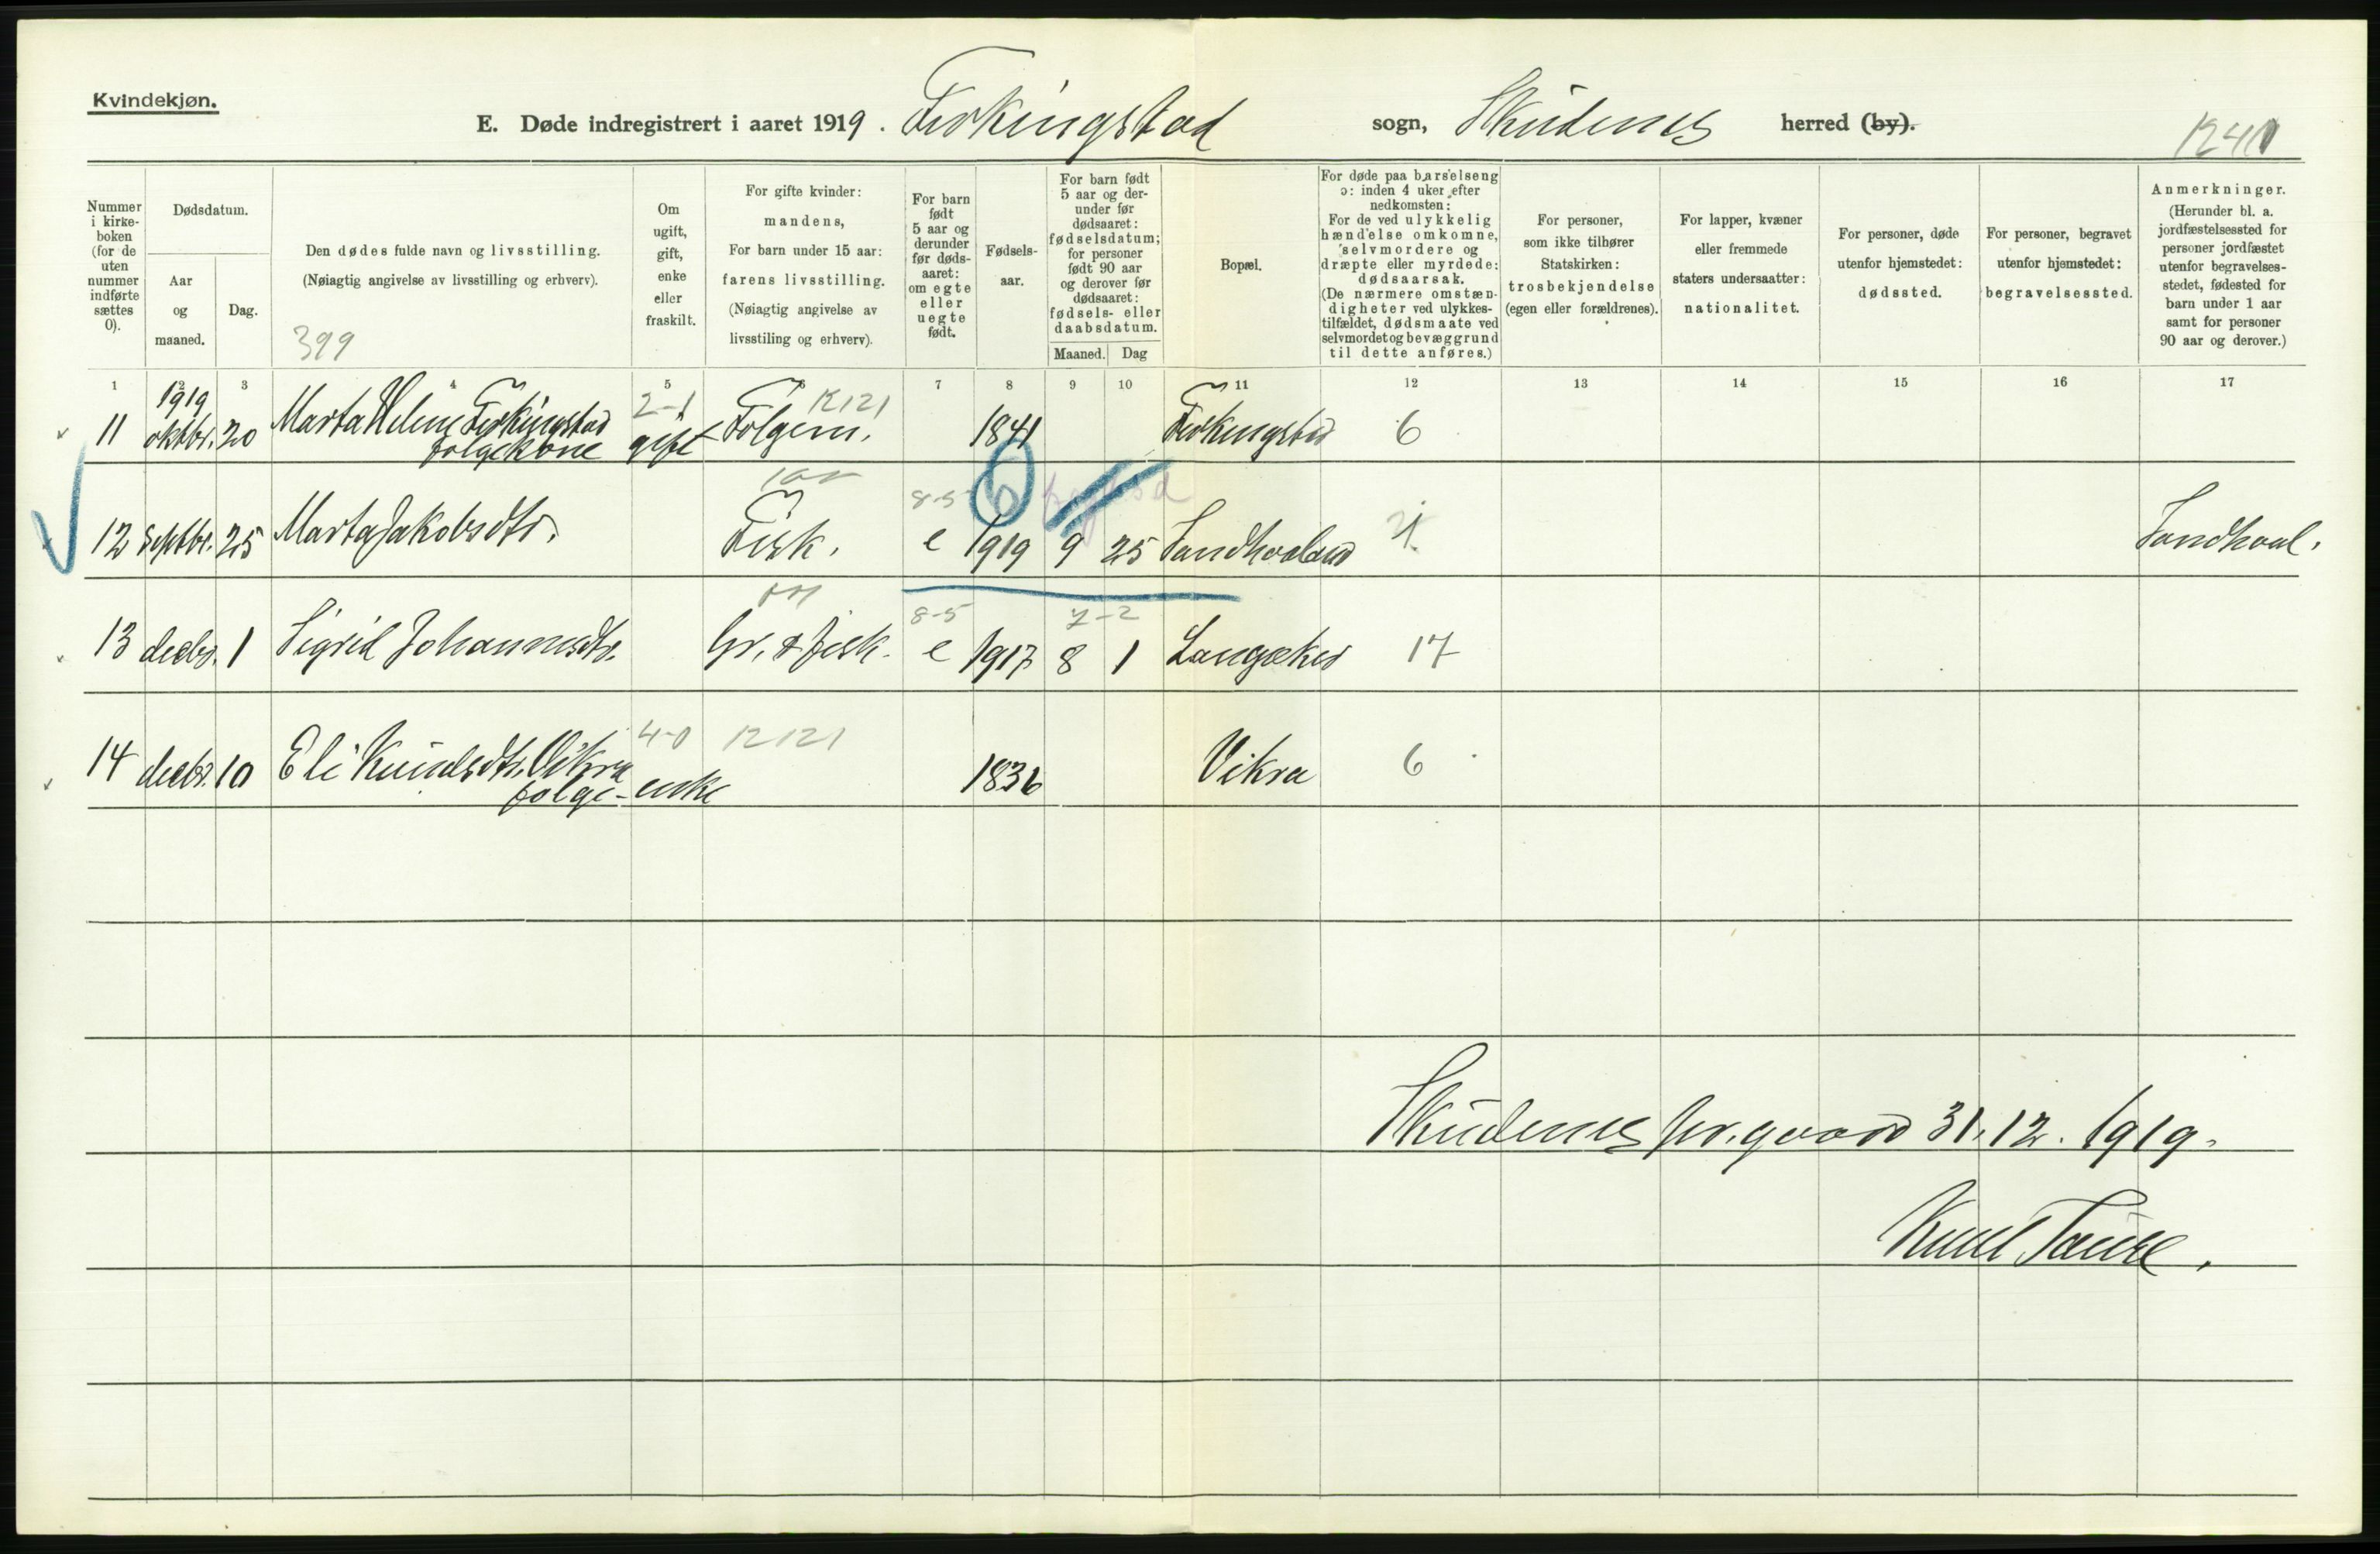 Kvindekjøn.
E. Døde indregistrert i aaret 1919. Ferkingstad sogn, Skudenes herred (by).
Nummer i kirke-boken (for de uten nummer indførte sættes 0).
Dødsdatum.
Aar og maaned.
Dag.
Den dødes fulde navn og livsstilling.
(Nøiagtig angivelse av livsstilling og erhverv).
399
Om ugift, gift, enke eller fraskilt.
For gifte kvinder: mandens,
For barn under 15 aar: farens livsstilling.
(Nøiagtig angivelse av livsstiling og erhverv).
For barn født 5 aar og derunder før døds-aaret: om egte eller uegte født.
Fødsels-aar.
For barn født 5 aar og der-under før dødsaaret: fødselsdatum; for personer født 90 aar og derover før dødsaaret: fødsels- eller daabsdatum.
Maaned. Dag
Bopæl.
For døde paa barselseng ɔ: inden 4 uker efter nedkomsten:
For de ved ulykkelig hændelse omkomne, selvmordere og dræpte eller myrdede: dødsaarsak.
(De nærmere omstæn-digheter ved ulykkes-tilfældet, dødsmaate ved selvmordet og bevæggrund til dette anføres.)
For personer, som ikke tilhører Statskirken: trosbekjendelse (egen eller forældrenes).
For lapper, kvæner eller fremmede staters undersaatter: nationalitet.
For personer, døde utenfor hjemstedet: dødssted.
For personer, begravet utenfor hjemstedet: begravelsessted.
Anmerkninger.
(Herunder bl. a. jordfæstelsessted for personer jordfæstet utenfor begravelses-stedet, fødested for barn under 1 aar samt for personer 90 aar og derover.)
1 2 3 4 5 6 7 8 9 10 11 12 13 14 15 16 17
1919 2-1 K121
11 oktbr. 20 Marta Heline Ferkingstad Folgekone gift Folgem. 1841 Ferkingstad 6
8-5 6
12 septbr. 25 Marta Jakobsdtr. Fisk. e 1919 9 25 Sandhaaland Sandhaal.
8-5 7-2
13 decbr. 1 Sigrid Johannesdtr. Gr. & fisk. e 1917 8 1 Langåker 17
4-0 K121
14 decbr. 10 Eli Knudsdtr. Vikra folge- enke 1836 Vikra 6
Skudenes pr.gaard 31.12.1919.